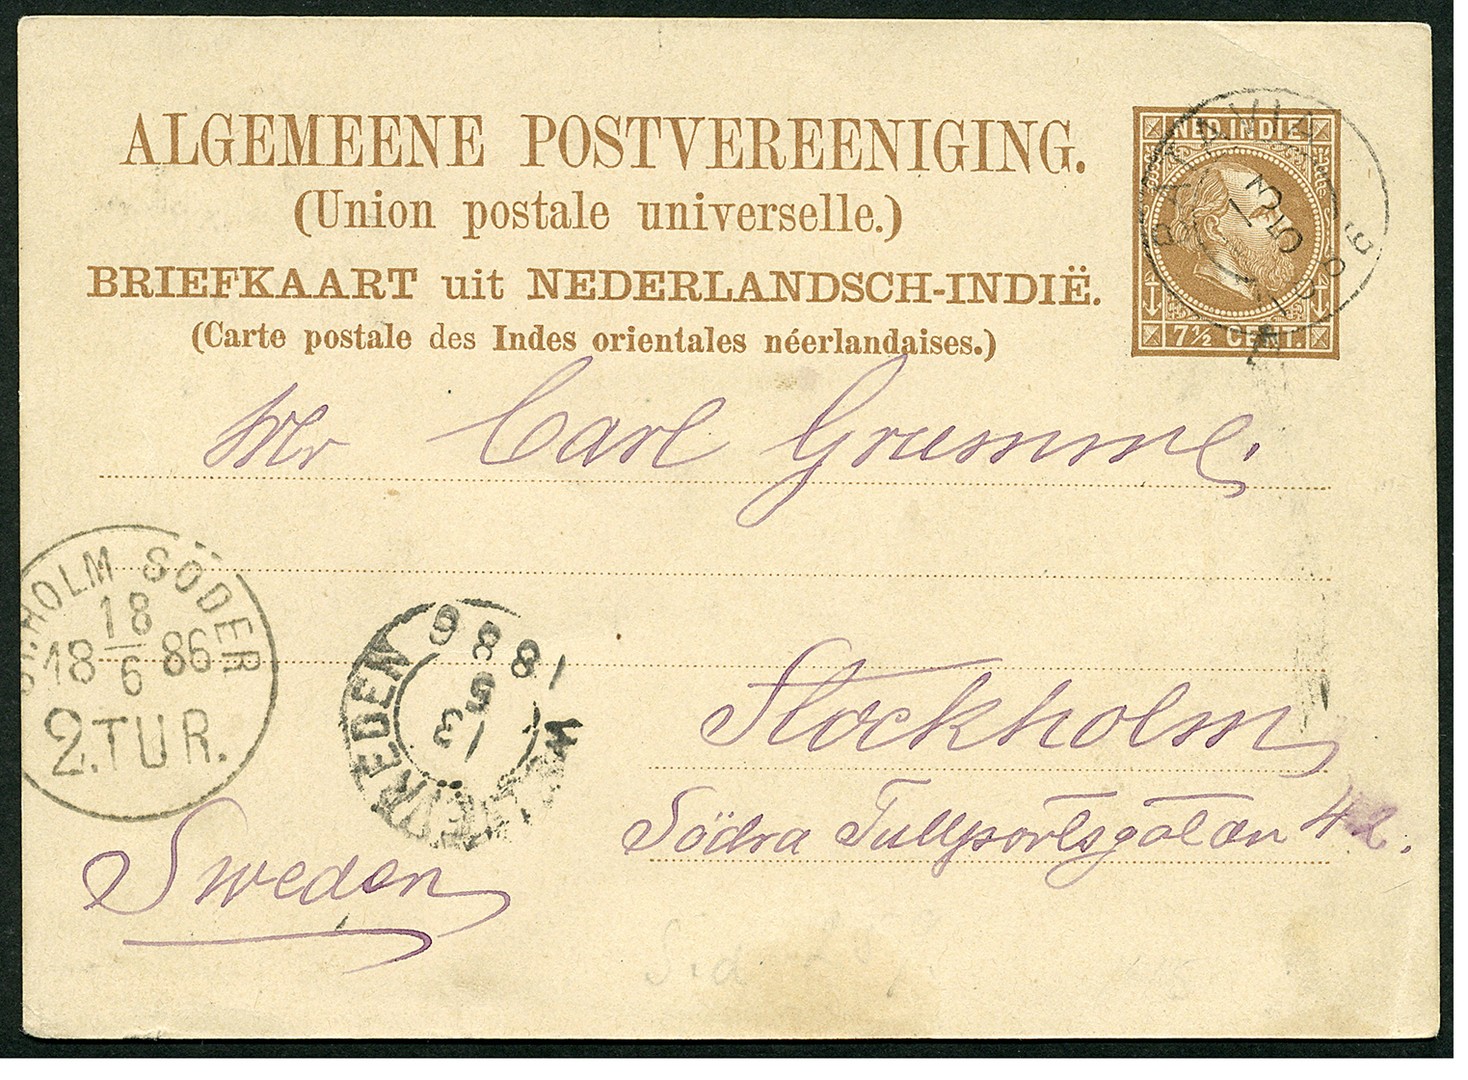 ALGEMEENE POSTVEREENIGING.
(Union postale universelle.)
BRIEFKAART uit NEDERLANDSCH-INDIË.
(Carte postale des Indes orientales néerlandaises.)
NED. INDIE
7½ CENT.
BATAVIA
Mr Carl Grumme.
HOLM SÖDER
18
18 6 86
2.TUR.
1886
5
13
WELTEVREDEN
Stockholm
Södra Tullportsgatan 42.
Sweden